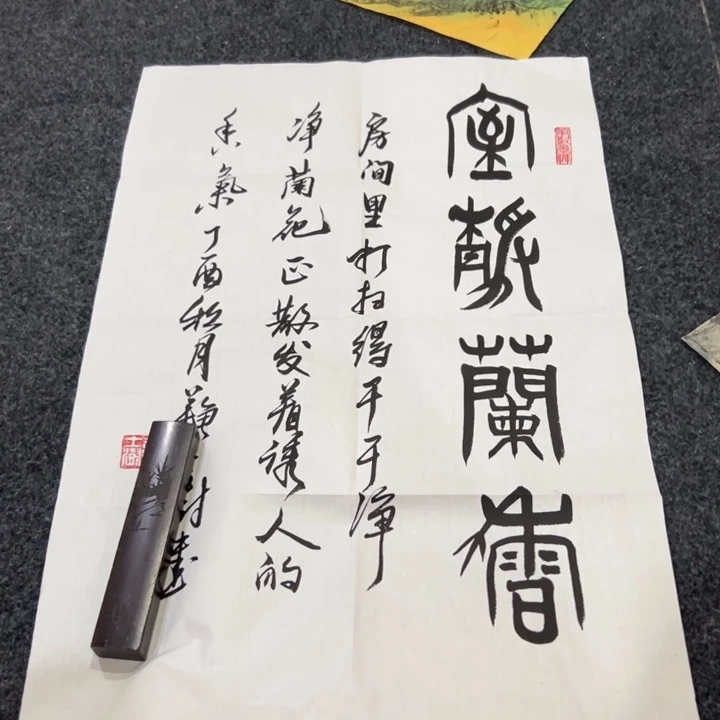 室靜蘭香
房间里打扫得干干净
净蘭花正散发着诱人的
香氣丁酉秋月